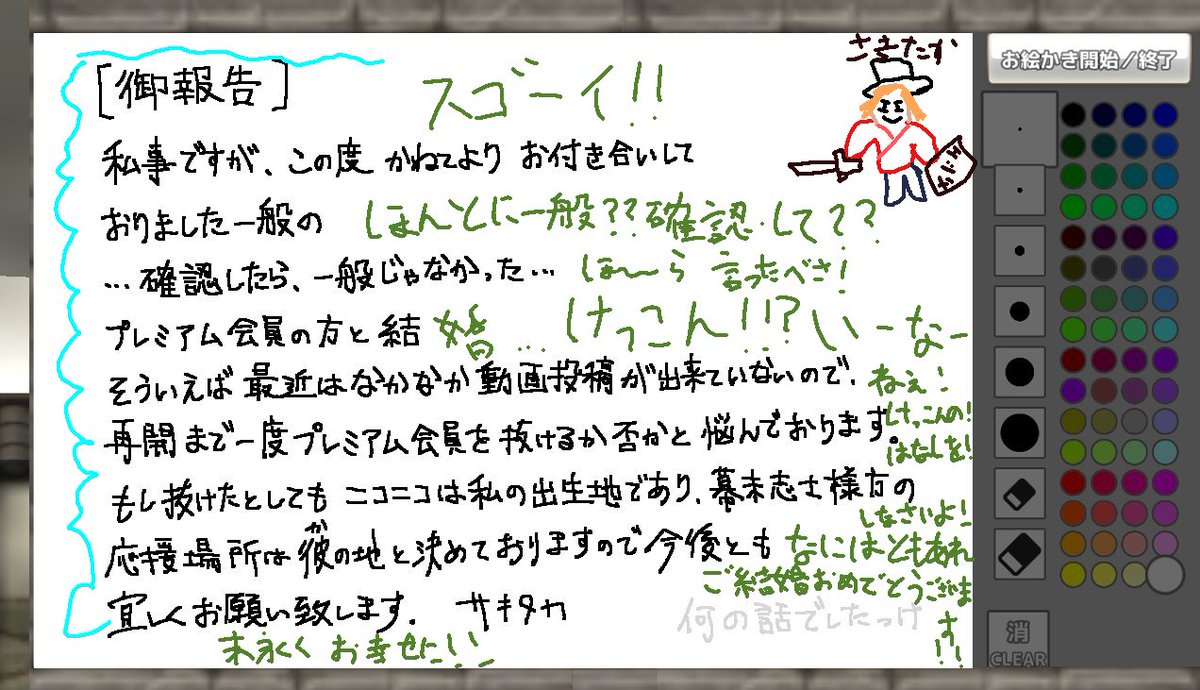 さきたか
お絵かき開始／終了
[御報告]
スゴーイ!!
私事ですが、この度 かねてより お付き合いして
おりました一般の
ほんとに一般??確認して??
…確認したら、一般じゃなかった…
ほ〜ら 言ったべさ!
プレミアム会員の方と結
婚… けっこん!!? い-なー
そういえば 最近はなかなか動画投稿が出来ていないので、
ねぇ!
再開まで一度プレミアム会員を抜けるか否かと悩んでおります。
けっこんの!
はなしを!
もし抜けたとしても ニコニコは私の出生地であり、幕末志士様方の
しなさいよ!
応援場所は彼の地と決めておりますので今後とも
か
なにはともあれ
ご結婚おめでとうございま
す!!
宜しくお願い致します. サキタカ
何の話でしたっけ
末永く お幸せに!!
消
CLEAR